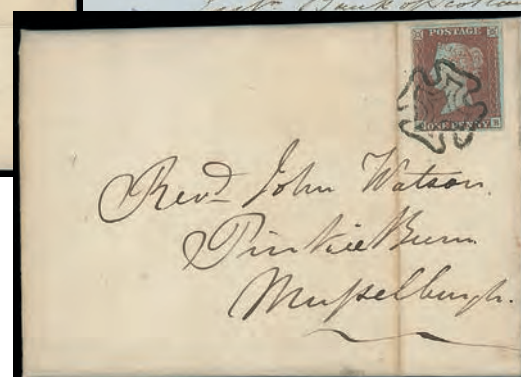 Bank of Scotland
POSTAGE
ONE PENNY
Revd. John Watson.
Pinkie Burn
Musselburgh.